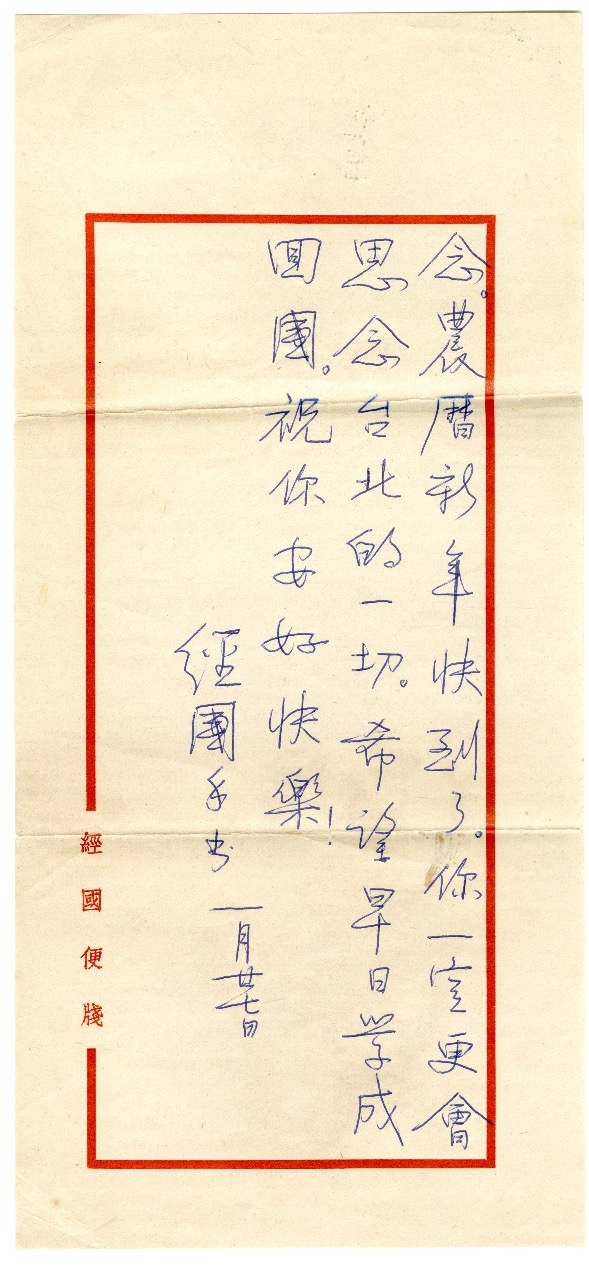 念。農曆新年快到了。你一定更會
思念台北的一切。希望早日学成
回國。祝你安好快樂!
經國手书 一月廿七日
經國便牋